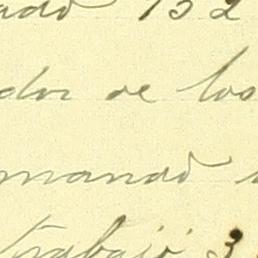 ado 132
dor de los
mando
trabajó 3